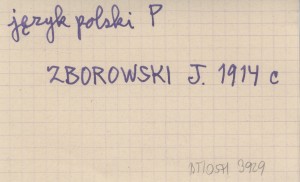 język polski P
ZBOROWSKI J. 1914 c
DT/OSH 3929